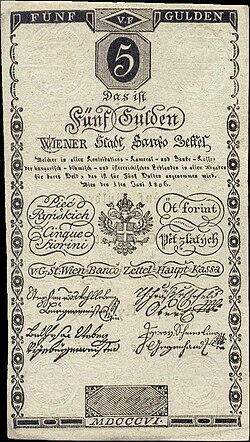 FÜNF V.F GULDEN
5
Das ist
Fünf Gulden
WIENER Stadt Banco Zettel.
Welcher in allen Kontributions- Kameral- und Banko-Kassen
der hungarisch- böhmisch- und österreichischen Erblanden in allen Abgaben
für baares Geld, das ist für Fünf Gulden angenommen wird.
Wien den 1ten Juni 1806.
Pięć
Ryńskich
Cinque
Fiorini
Öt forint
Pět zlatých
V.G. St. Wien. Banco Zettel Haupt Kassa
MDCCCVI